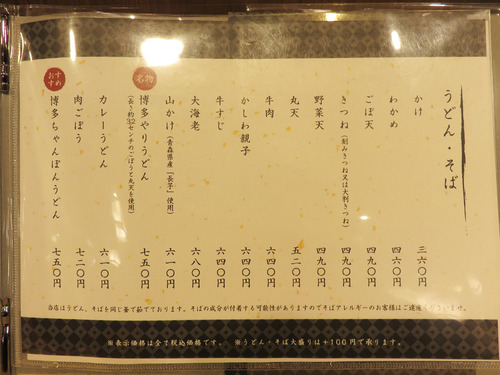 うどん・そば
かけ 三六〇円
わかめ 四六〇円
ごぼ天 四九〇円
きつね(刻みきつね又は大判きつね) 四九〇円
野菜天 四九〇円
丸天 五二〇円
牛肉 六四〇円
かしわ親子 六四〇円
牛すじ 六四〇円
大海老 六八〇円
山かけ(青森県産「長芋」使用) 六一〇円
名物
博多やりうどん 七五〇円
(長さ約32センチのごぼうと丸天を使用)
カレーうどん 六一〇円
肉ごぼう 七二〇円
おすすめ
博多ちゃんぽんうどん 七五〇円
当店はうどん、そばを同じ釜で茹でております。そばの成分が付着する可能性がありますのでそばアレルギーのお客様はご遠慮くださいませ。
※表示価格は全て税込価格です。 ※うどん・そば大盛りは+100円で承ります。